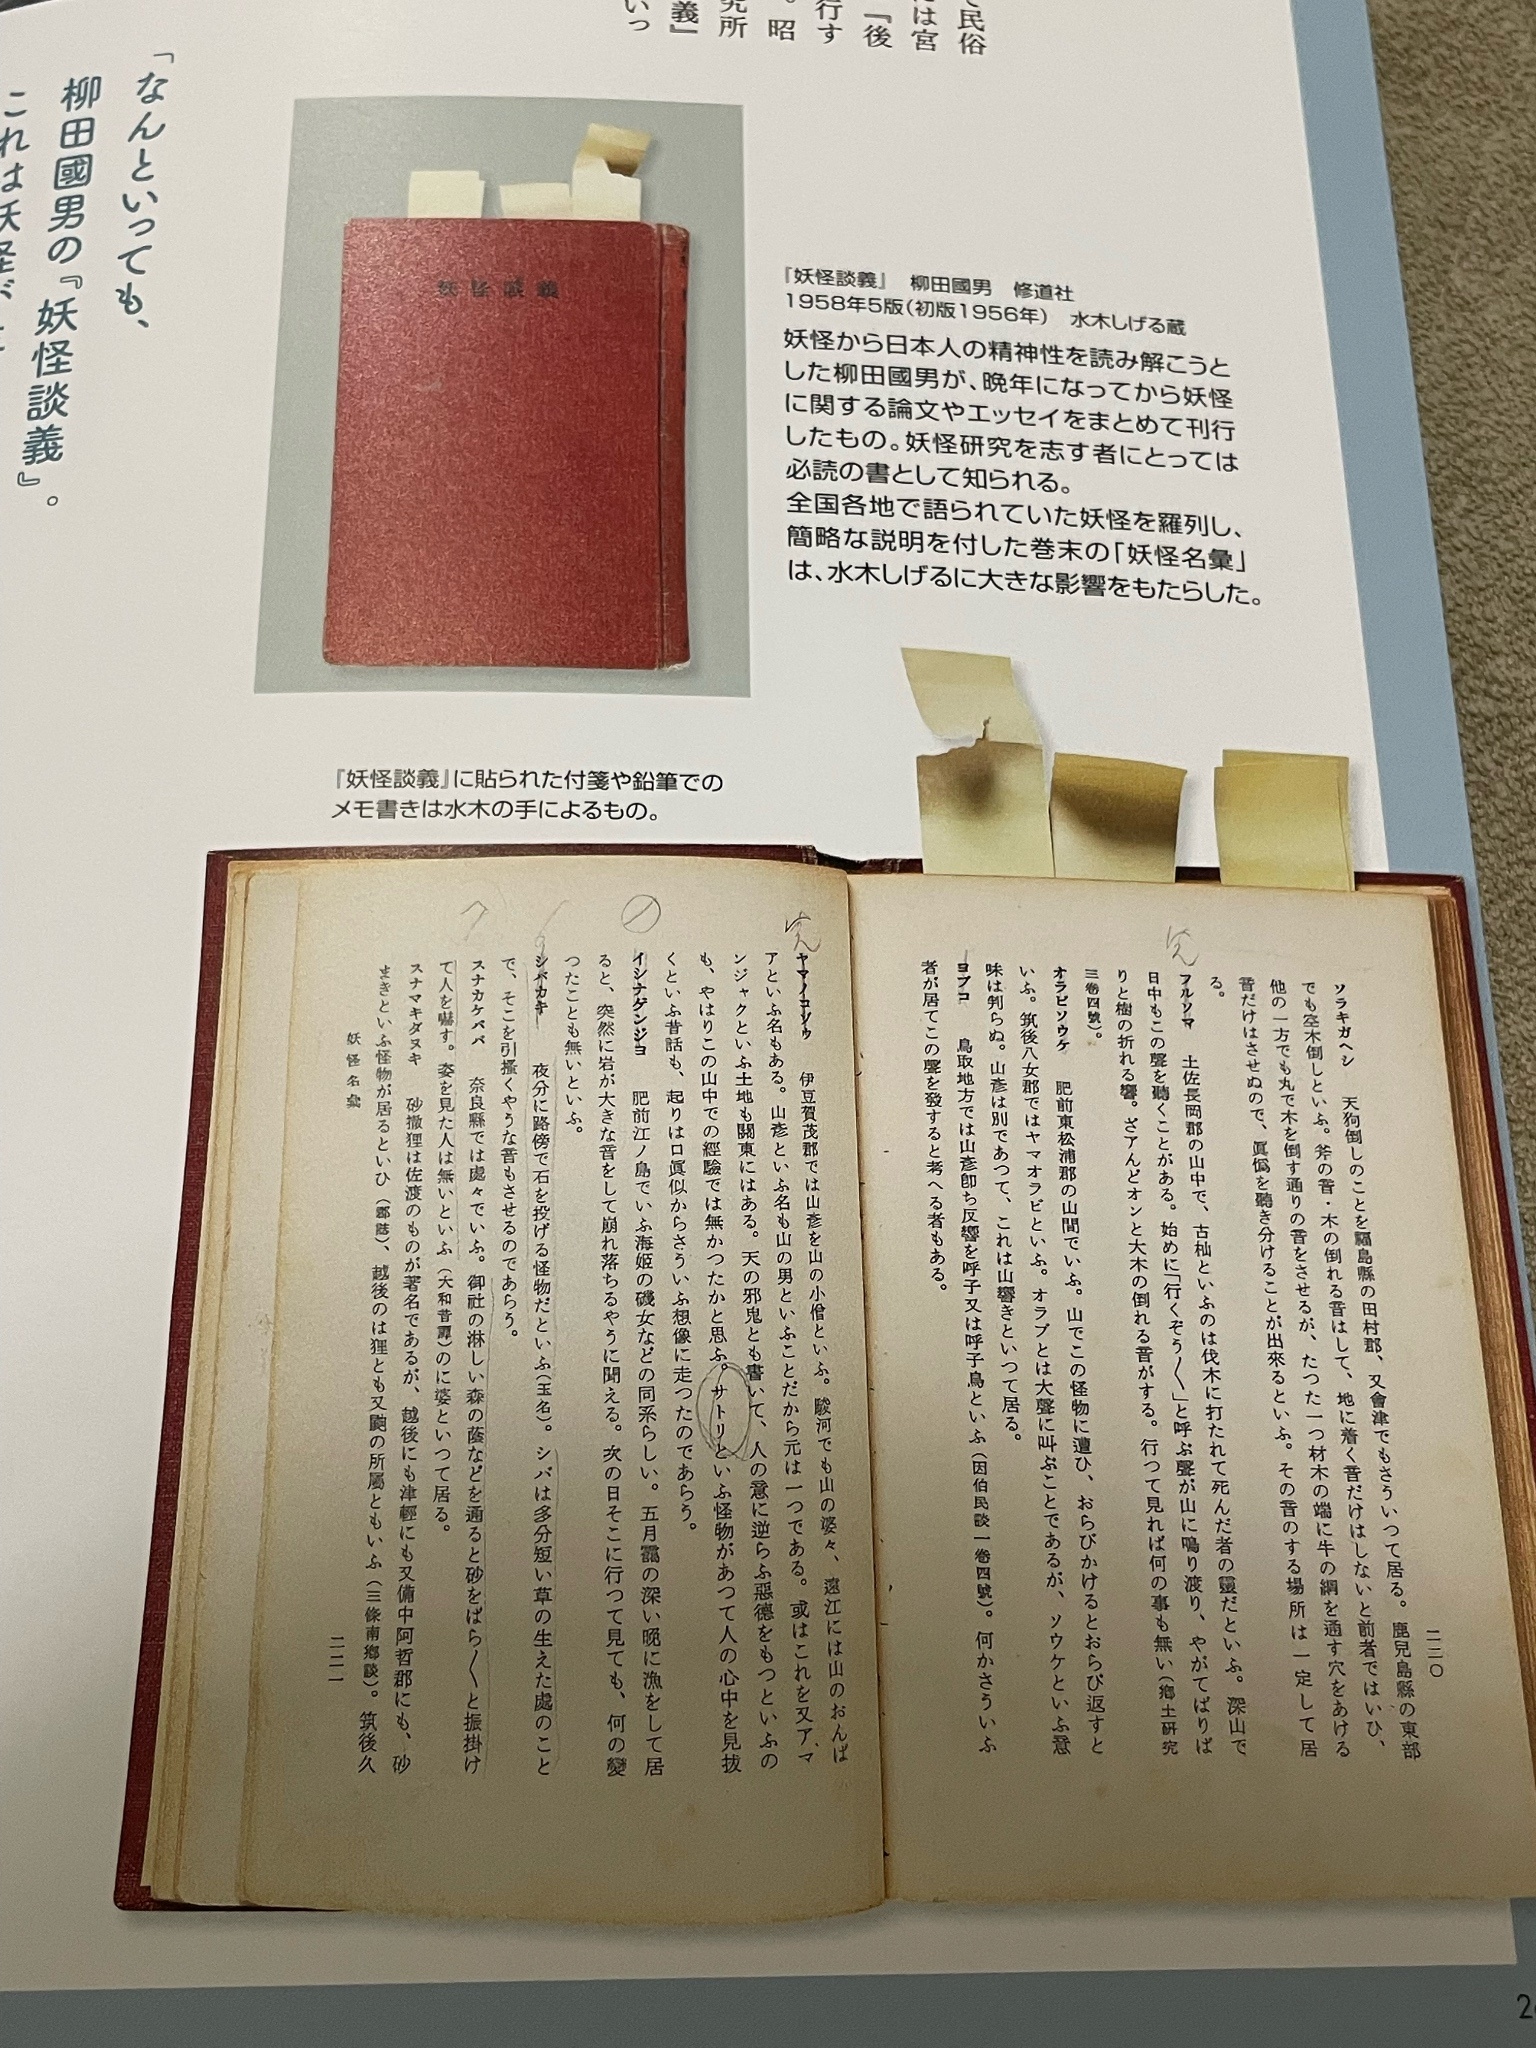 で民俗
には宮
『後
行す
。昭
究所
義』
いっ
「なんといっても、
柳田國男の『妖怪談義』。
これは妖怪が
妖怪談義
『妖怪談義』 柳田國男 修道社
1958年5版（初版1956年） 水木しげる蔵
妖怪から日本人の精神性を読み解こうと
した柳田國男が、晩年になってから妖怪
に関する論文やエッセイをまとめて刊行
したもの。妖怪研究を志す者にとっては
必読の書として知られる。
全国各地で語られていた妖怪を羅列し、
簡略な説明を付した巻末の「妖怪名彙」
は、水木しげるに大きな影響をもたらした。
『妖怪談義』に貼られた付箋や鉛筆での
メモ書きは水木の手によるもの。
二二〇
ソラキガヘシ 天狗倒しのことを福島縣の田村郡、又會津でもさういつて居る。鹿兒島縣の東部
でも空木倒しといふ。斧の音・木の倒れる音はして、地に着く音だけはしないと前者ではいひ、
他の一方でも丸で木を倒す通りの音をさせるが、たつた一つ材木の端に牛の綱を通す穴をあける
音だけはさせぬので、眞僞を聽き分けることが出來るといふ。その音のする場所は一定して居
る。
フルソマ 土佐長岡郡の山中で、古杣といふのは伐木に打たれて死んだ者の靈だといふ。深山で
日中もこの聲を聽くことがある。始めに「行くぞう〱」と呼ぶ聲が山に鳴り渡り、やがてばりば
りと樹の折れる響。ざアんどオンと大木の倒れる音がする。行つて見れば何の事も無い（郷土研究
三卷四號）。
オラビソウケ 肥前東松浦郡の山間でいふ。山でこの怪物に遭ひ、おらびかけるとおらび返すと
いふ。筑後八女郡ではヤマオラビといふ。オラブとは大聲に叫ぶことであるが、ソウケといふ意
味は判らぬ。山彦は別であつて、これは山響きといつて居る。
ヨブコ 鳥取地方では山彦卽ち反響を呼子又は呼子鳥といふ（因伯民談一卷四號）。何かさういふ
者が居てこの聲を發すると考へる者もある。
ヤマノコゾウ 伊豆賀茂郡では山彦を山の小僧といふ。駿河でも山の婆々、遠江には山のおんば
アといふ名もある。山彦といふ名も山の男といふことだから元は一つである。或はこれを又アマ
ンジャクといふ土地も關東にはある。天の邪鬼とも書いて、人の意に逆らふ惡德をもつといふの
も、やはりこの山中での經驗では無かつたかと思ふ。サトリといふ怪物があつて人の心中を見拔
くといふ昔話も、起りは口眞似からさういふ想像に走つたのであらう。
イシナゲンジョ 肥前江ノ島でいふ海姬の磯女などの同系らしい。五月靄の深い晚に漁をして居
ると、突然に岩が大きな音をして崩れ落ちるやうに聞える。次の日そこに行つて見ても、何の變
つたことも無いといふ。
シバカキ 夜分に路傍で石を投げる怪物だといふ（玉名）。シバは多分短い草の生えた處のこと
で、そこを引搔くやうな音もさせるのであらう。
スナカケババ 奈良縣では處々でいふ。御社の淋しい森の蔭などを通ると砂をばら〱と振掛け
て人を嚇す。姿を見た人は無いといふ（大和昔譚）のに婆といつて居る。
スナマキダヌキ 砂撒狸は佐渡のものが著名であるが、越後にも津輕にも又備中阿哲郡にも、砂
まきといふ怪物が居るといひ（鄕誌）、越後のは狸とも又鼬の所屬ともいふ（三條南鄕談）。筑後久
妖怪名彙
二二一